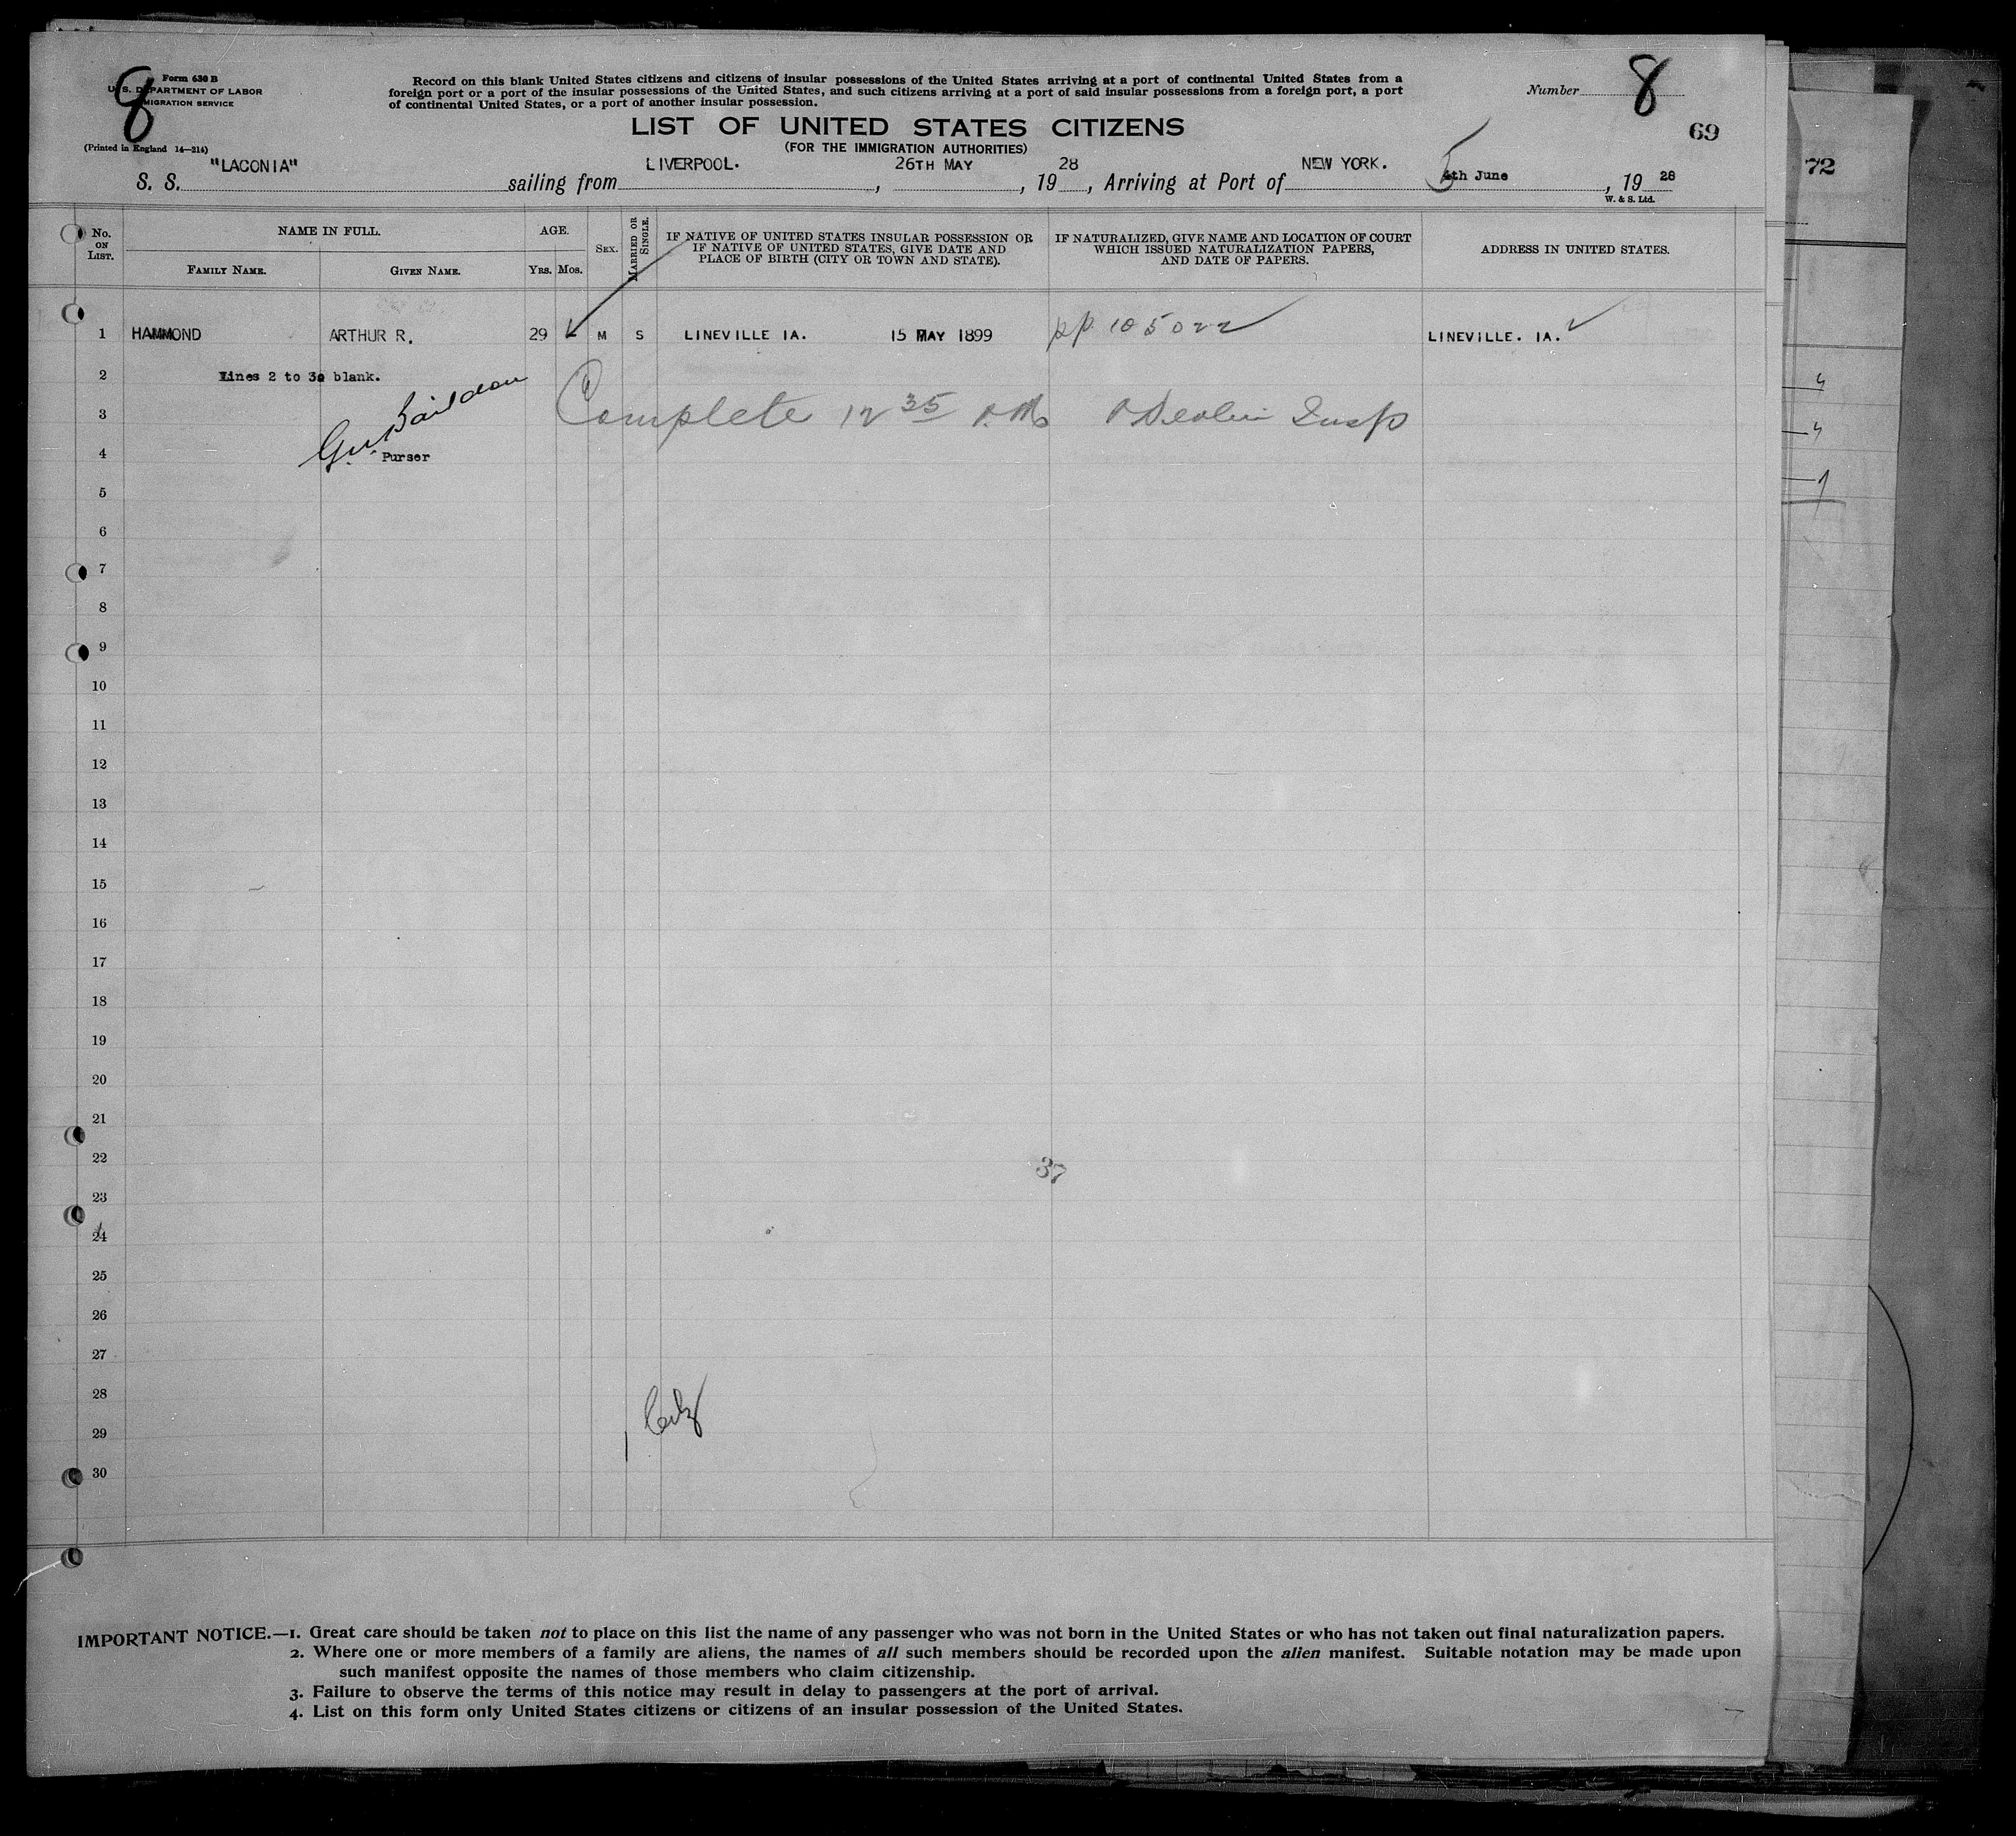 8
Form 630 B
U. S. DEPARTMENT OF LABOR
IMMIGRATION SERVICE
(Printed in England 14—214)
Record on this blank United States citizens and citizens of insular possessions of the United States arriving at a port of continental United States from a
foreign port or a port of the insular possessions of the United States, and such citizens arriving at a port of said insular possessions from a foreign port, a port
of continental United States, or a port of another insular possession.
Number 8
69
72
LIST OF UNITED STATES CITIZENS
(FOR THE IMMIGRATION AUTHORITIES)
S. S. "LACONIA" sailing from LIVERPOOL. , 26TH MAY , 19 28 , Arriving at Port of NEW YORK. 5 4th June , 19 28
W. & S. Ltd.
No. ON LIST.
NAME IN FULL.
FAMILY NAME.
GIVEN NAME.
AGE.
YRS.
MOS.
SEX.
MARRIED OR SINGLE.
IF NATIVE OF UNITED STATES INSULAR POSSESSION OR
IF NATIVE OF UNITED STATES, GIVE DATE AND
PLACE OF BIRTH (CITY OR TOWN AND STATE).
IF NATURALIZED, GIVE NAME AND LOCATION OF COURT
WHICH ISSUED NATURALIZATION PAPERS,
AND DATE OF PAPERS.
ADDRESS IN UNITED STATES.
1 HAMMOND ARTHUR R. 29 M S LINEVILLE IA. 15 MAY 1899 pp 105022 LINEVILLE. IA.
2 Lines 2 to 30 blank.
3 Complete 12 35 P.M. Insp
4 Purser
5
6
7
8
9
10
11
12
13
14
15
16
17
18
19
20
21
22
37
23
24
25
26
27
28
29
30
IMPORTANT NOTICE.—1. Great care should be taken not to place on this list the name of any passenger who was not born in the United States or who has not taken out final naturalization papers.
2. Where one or more members of a family are aliens, the names of all such members should be recorded upon the alien manifest. Suitable notation may be made upon
such manifest opposite the names of those members who claim citizenship.
3. Failure to observe the terms of this notice may result in delay to passengers at the port of arrival.
4. List on this form only United States citizens or citizens of an insular possession of the United States.